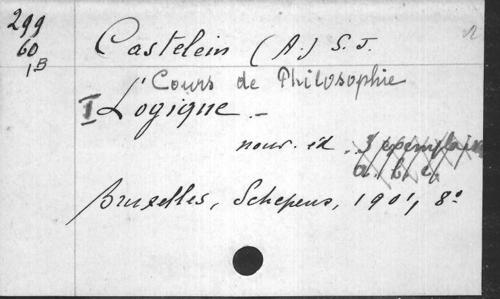 299
60
1B
Castelein (A.) S.J.
Cours de Philosophie
I Logique. –
nouv. éd. 3 exemplaires
a. b. c.
Bruxelles, Schepens, 1901, 8º